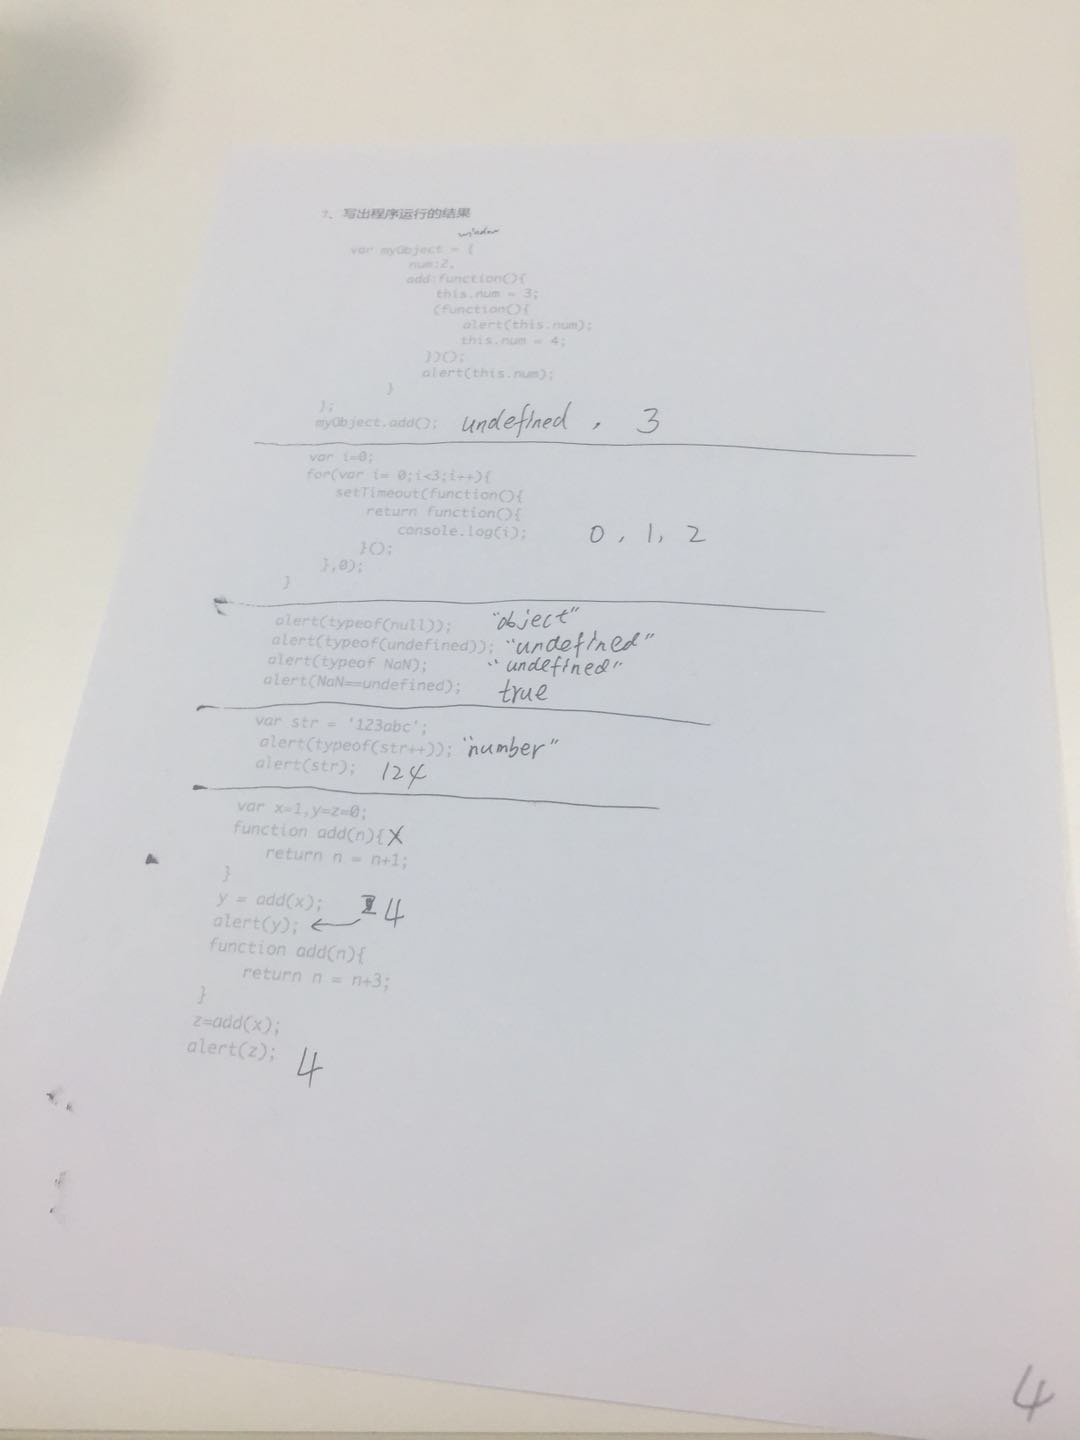 7、写出程序运行的结果
window
var myObject = {
num:2,
add:function(){
this.num = 3;
(function(){
alert(this.num);
this.num = 4;
})();
alert(this.num);
}
};
myObject.add(); undefined , 3
var i=0;
for(var i= 0;i<3;i++){
setTimeout(function(){
return function(){
console.log(i); 0 , 1, 2
}();
},0);
}
alert(typeof(null)); "object"
alert(typeof(undefined)); "undefined"
alert(typeof NaN); "undefined"
alert(NaN==undefined); true
var str = '123abc';
alert(typeof(str++)); "number"
alert(str); 124
var x=1,y=z=0;
function add(n){ X
return n = n+1;
}
y = add(x); 4
alert(y); ←
function add(n){
return n = n+3;
}
z=add(x);
alert(z); 4
4